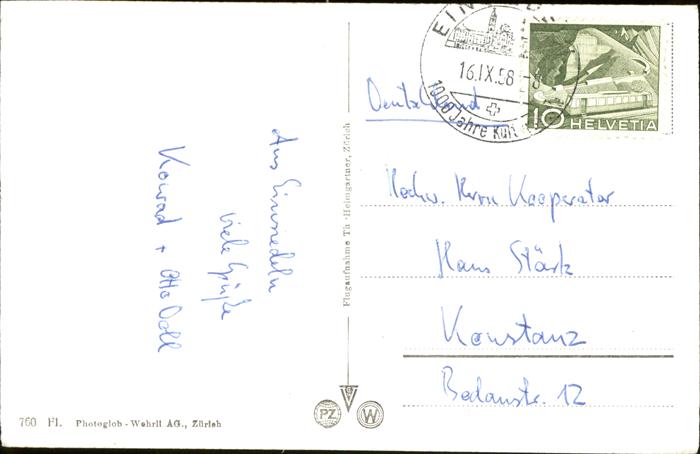 Aus Einsiedeln
viele Grüße
Konrad + Otto Doll
760 Fl. Photoglob - Wehrli AG., Zürich
Flugaufnahme Th. Heimgartner, Zürich
PZ
W
16.IX.58
1000 Jahre
10 HELVETIA
Deutschland
Hochw. Herrn Kooperator
Hans Stärk
Konstanz
Bodanstr. 12